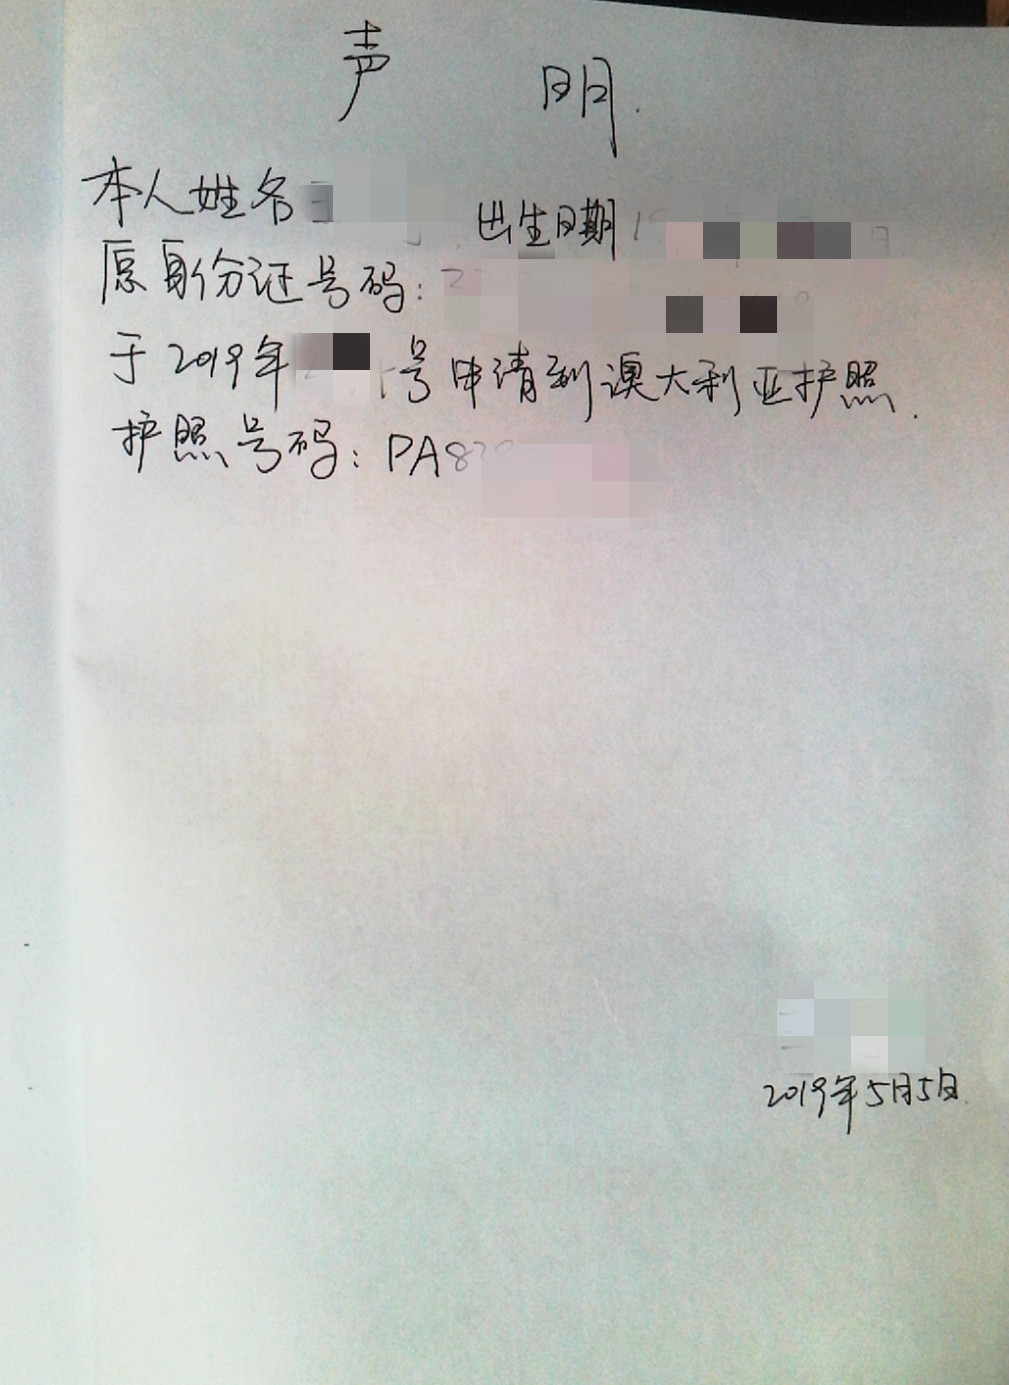 声 明.
本人姓名 出生日期
原身份证号码:
于2019年 号申请到澳大利亚护照.
护照号码: PA8
2019年5月5日.